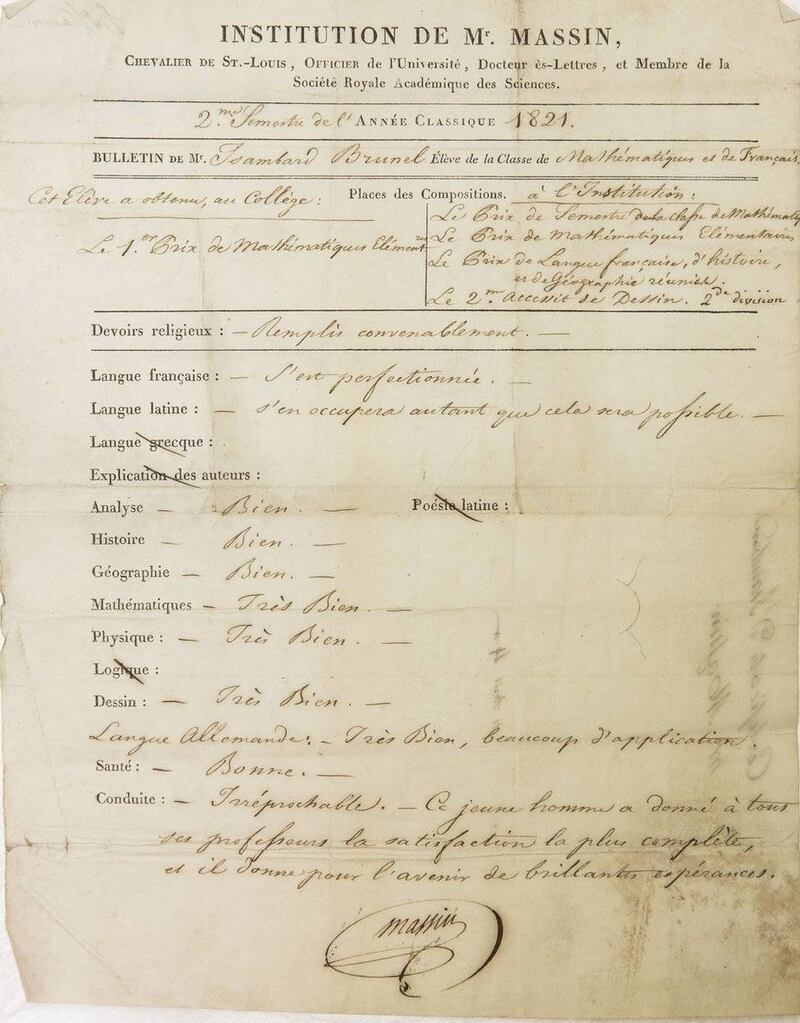 INSTITUTION DE Mr. MASSIN,
CHEVALIER DE ST.-LOUIS, OFFICIER de l'Université, Docteur ès-Lettres, et Membre de la
Société Royale Académique des Sciences.
2.me Semestre de l'ANNÉE CLASSIQUE 1821.
BULLETIN DE Mr. Isambard Brunel Élève de la Classe de Mathématiques et de Français
Cet Elève a obtenu, au Collège : Places des Compositions. à l'Institution :
Le Prix de Semestre de la classe de Mathémat
Le 1.er Prix de Mathématiques Elément Le Prix de Mathématiques Elémentaires
Le Prix de Langue française, d'histoire,
et de Géographie réunies.
Le 2.me Accessit de Dessin. 2de division
Devoirs religieux : — Remplis convenablement. —
Langue française : — S'est perfectionnée. —
Langue latine : — s'en occupera autant que cela sera possible. —
Langue grecque :
Explication des auteurs :
Analyse — Bien. — Poésie latine :
Histoire — Bien. —
Géographie — Bien. —
Mathématiques — Très Bien. —
Physique : — Très Bien. —
Logique :
Dessin : — Très Bien. —
Langue Allemande : — Très Bien, beaucoup d'application.
Santé : — Bonne. —
Conduite : — Irréprochable. — Ce jeune homme a donné à tous
ses professeurs la satisfaction la plus complète,
et il donne pour l'avenir de brillantes espérances.
Massin